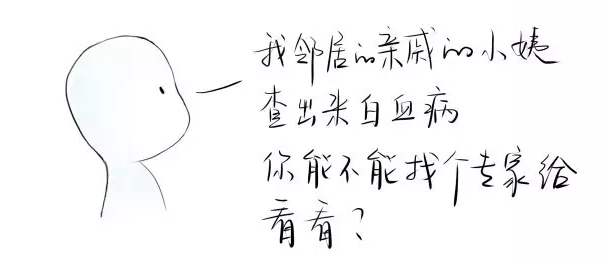 我邻居的亲戚的小姨
查出来白血病
你能不能找个专家给
看看?